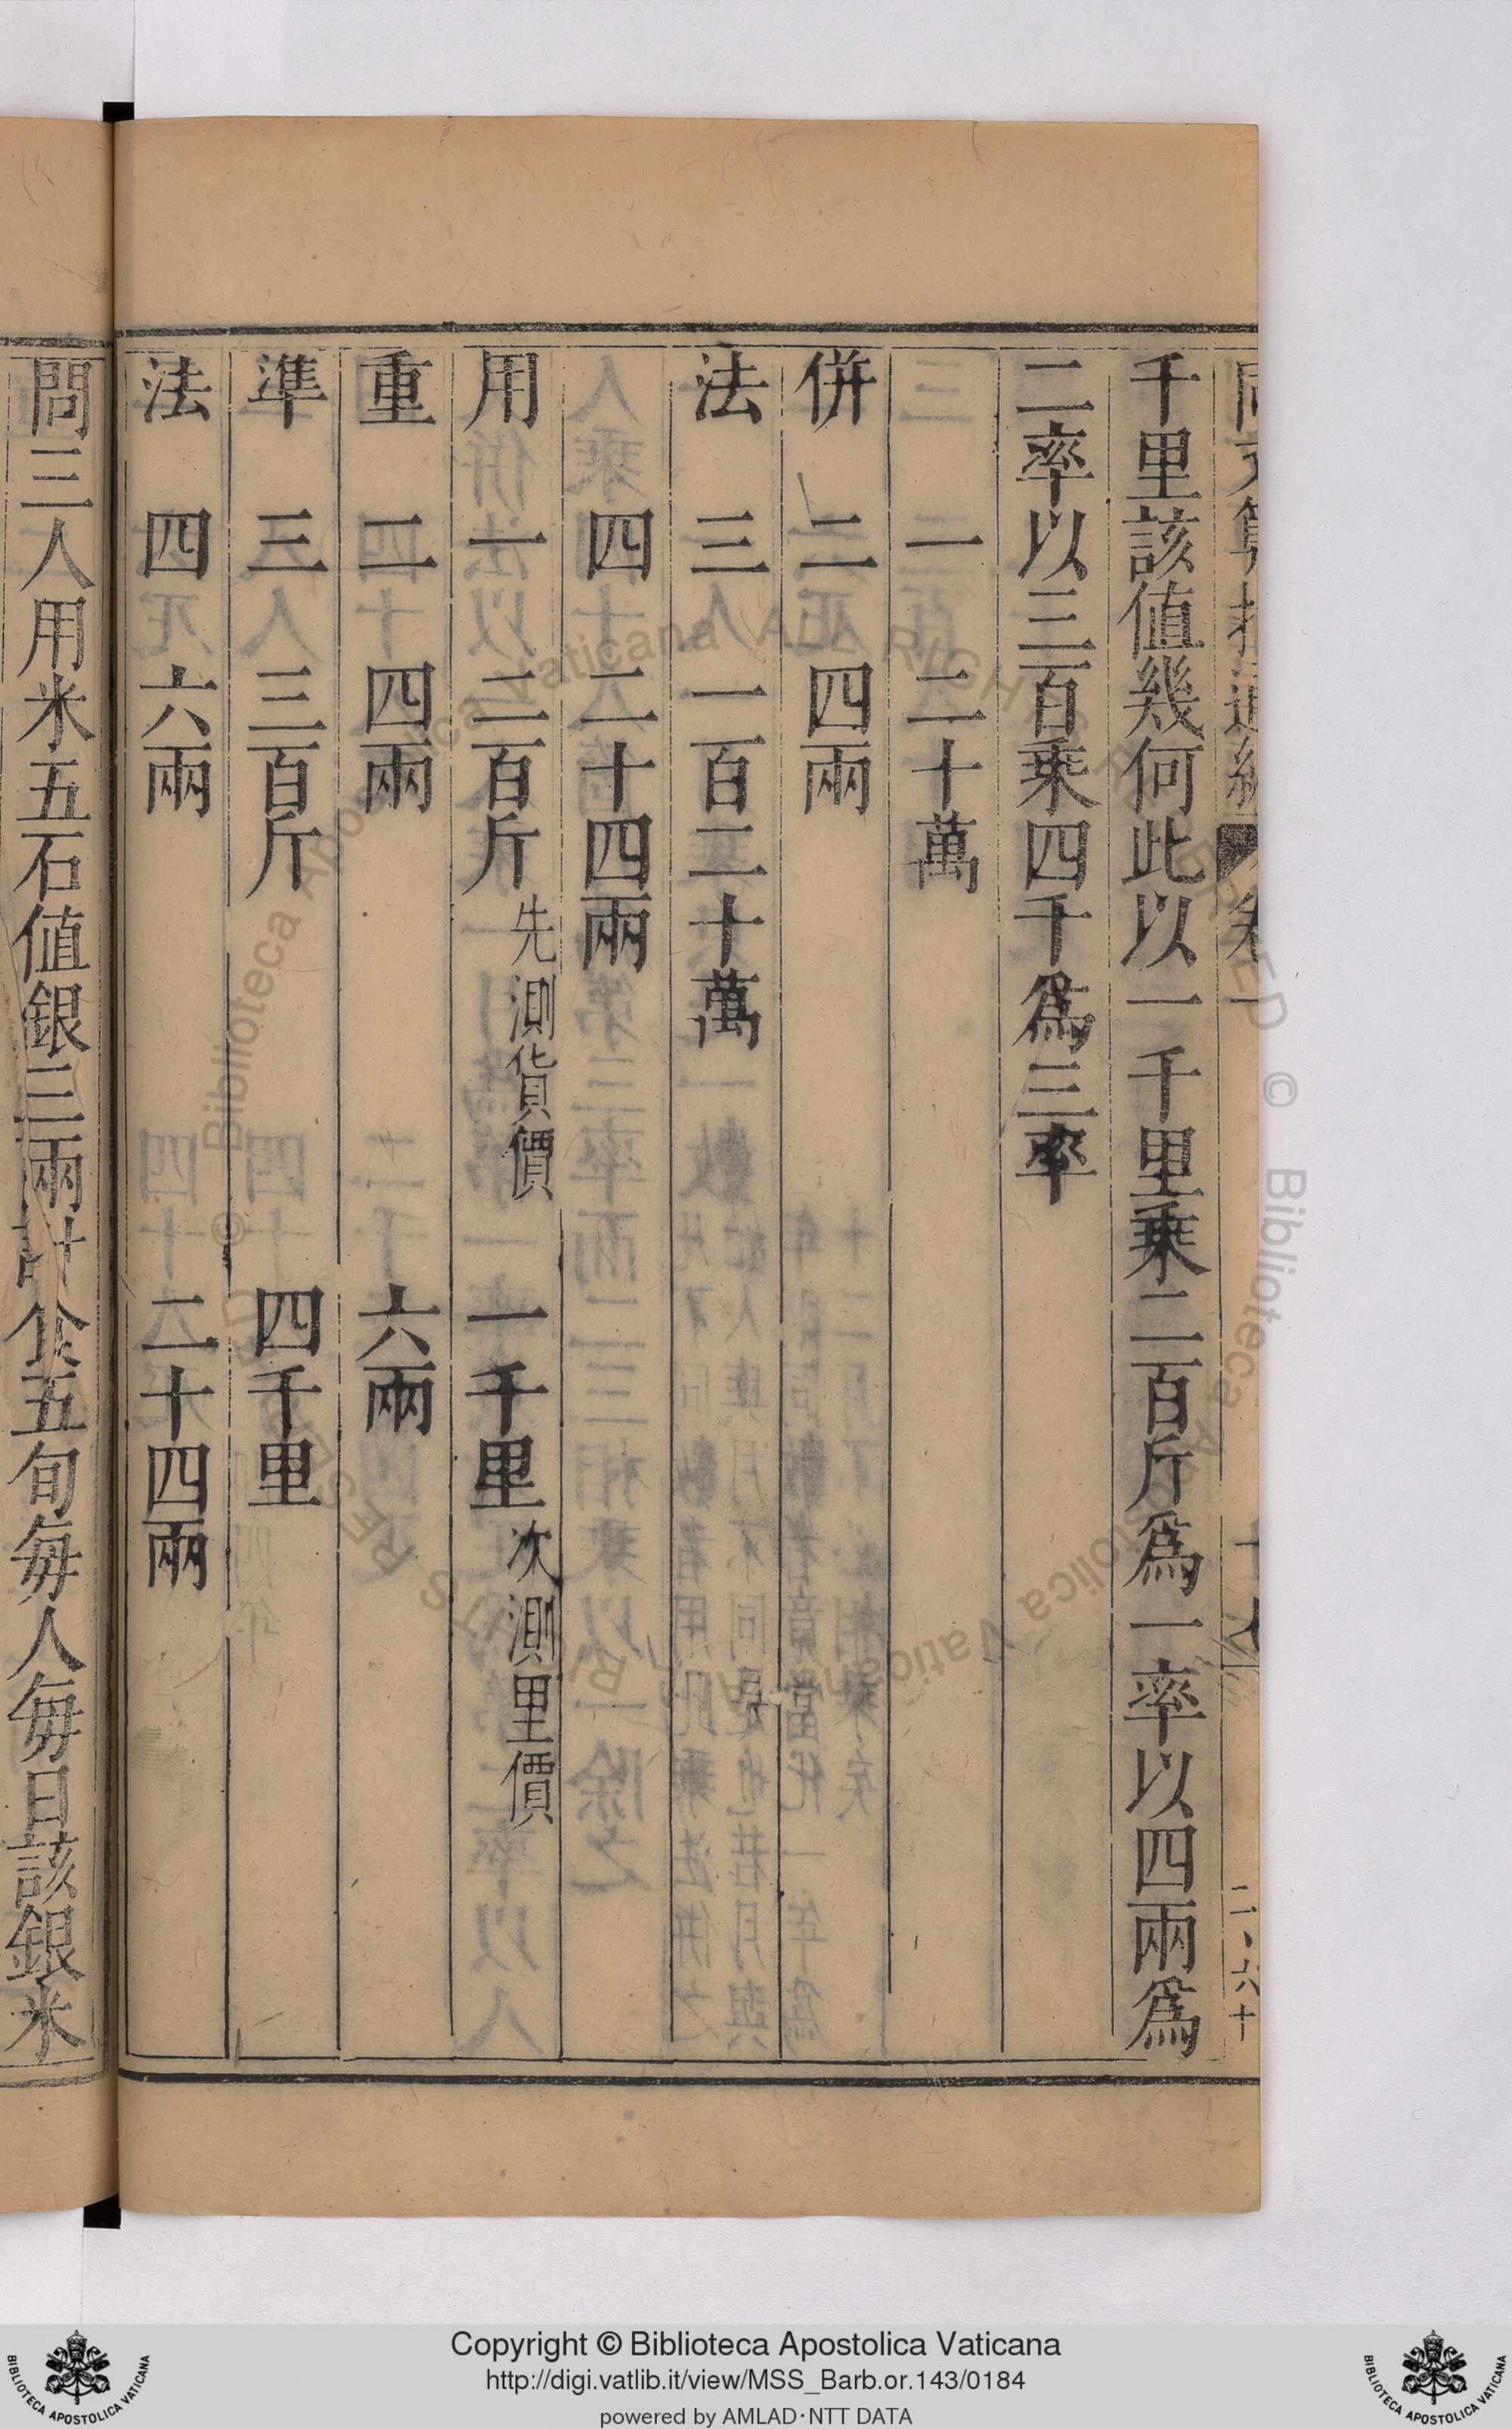 千里該值幾何此以一千里乗二百斤爲一率以四兩爲
二率以三百乗四千爲三率
一 二十萬
併 二 四兩
法 三 一百二十萬
四 二十四兩
用 一 二百斤 先測貨價 一千里 次測里價
重 二 四兩 六兩
準 三 三百斤 四千里
法 四 六兩 二十四兩
問三人用米五石值銀三兩計食五旬每人每日該銀米
Copyright © Biblioteca Apostolica Vaticana
http://digi.vatlib.it/view/MSS_Barb.or.143/0184
powered by AMLAD·NTT DATA
BIBLIOTECA APOSTOLICA VATICANA
BIBLIOTECA APOSTOLICA VATICANA